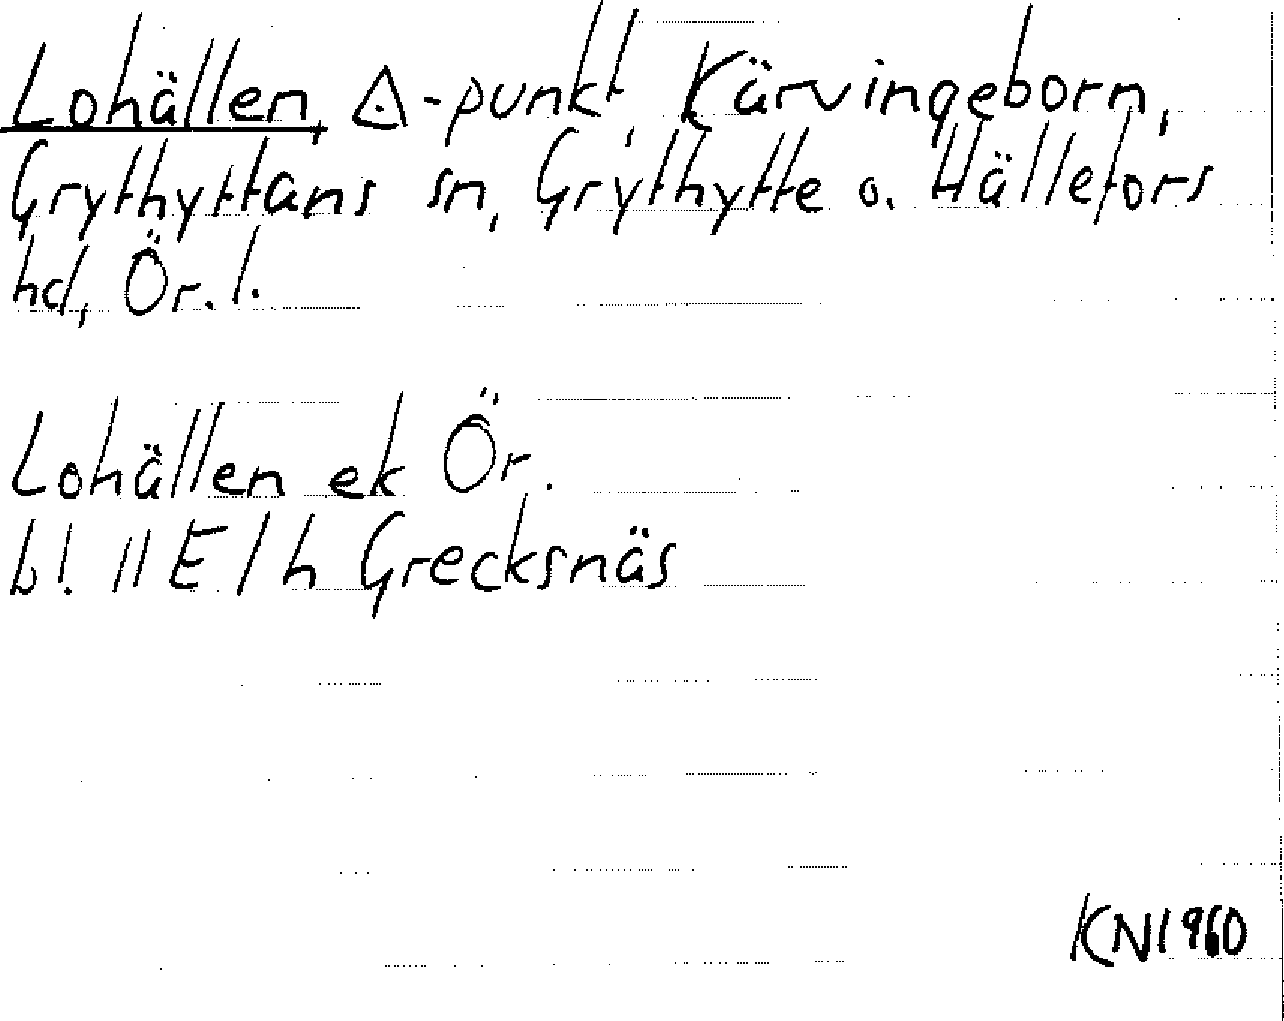 Lohällen, △-punkt, Kärvingeborn,
Grythyttans sn, Grythytte o. Hällefors
hd, Ör. l.
Lohällen ek Ör.
bl. 11 E/h Grecksnäs
KN 1960